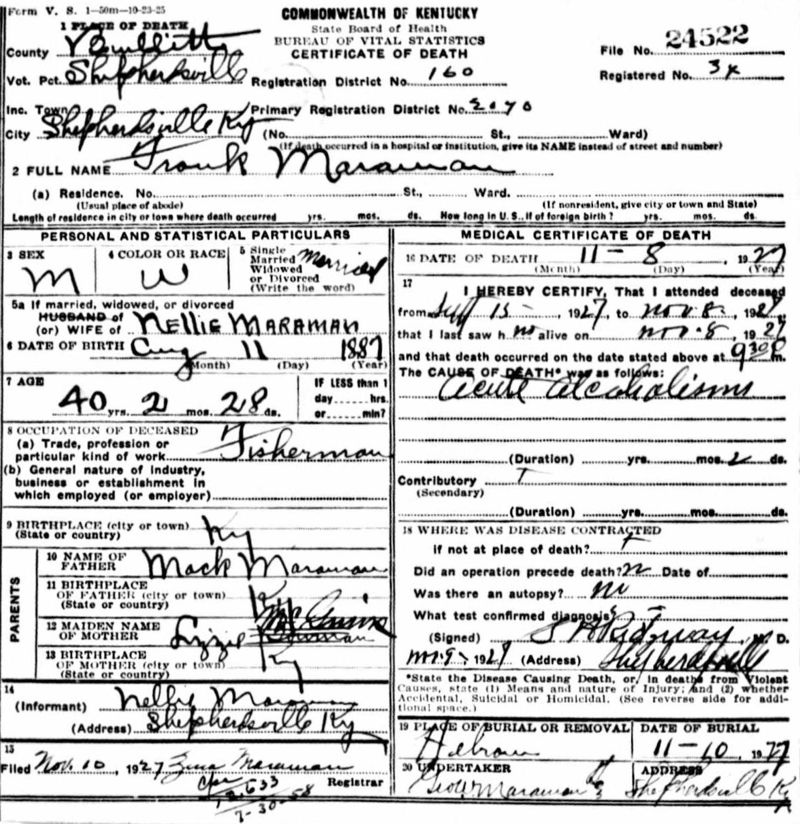 Form V. S. 1-50m-10-23-25
COMMONWEALTH OF KENTUCKY
State Board of Health
BUREAU OF VITAL STATISTICS
CERTIFICATE OF DEATH
File No. 24522
Registered No. 34
1 PLACE OF DEATH
County Bullitt
Vot. Pct. Shepherdsville Registration District No. 160
Inc. Town Primary Registration District No. 2070
City Shepherdsville Ky (No. St., Ward)
(If death occurred in a hospital or institution, give its NAME instead of street and number)
2 FULL NAME Frank Maraman
(a) Residence. No. St., Ward.
(Usual place of abode) (If nonresident, give city or town and State)
Length of residence in city or town where death occurred yrs. mos. ds. How long in U. S., if of foreign birth? yrs. mos. ds.
PERSONAL AND STATISTICAL PARTICULARS
3 SEX M
4 COLOR OR RACE W
5 Single Married Widowed or Divorced (Write the word) Married
5a If married, widowed, or divorced
HUSBAND of
(or) WIFE of NELLIE MARAMAN
6 DATE OF BIRTH Aug 11 1887
(Month) (Day) (Year)
7 AGE 40 yrs. 2 mos. 28 ds.
IF LESS than 1 day hrs. or min?
8 OCCUPATION OF DECEASED
(a) Trade, profession or particular kind of work Fisherman
(b) General nature of industry, business or establishment in which employed (or employer)
9 BIRTHPLACE (city or town) (State or country) Ky
PARENTS
10 NAME OF FATHER Mack Maraman
11 BIRTHPLACE OF FATHER (city or town) (State or country) Ky
12 MAIDEN NAME OF MOTHER Lizzie
13 BIRTHPLACE OF MOTHER (city or town) (State or country) Ky
14
(Informant) Nellie Maraman
(Address) Shepherdsville Ky
15
Filed Nov. 10, 1927 Zena Maraman
Registrar
7-30-58
MEDICAL CERTIFICATE OF DEATH
16 DATE OF DEATH 11-8 1927
(Month) (Day) (Year)
17
I HEREBY CERTIFY, That I attended deceased
from Sept 15- 1927, to Nov. 8, 1927,
that I last saw h m alive on Nov. 8, 1927
and that death occurred on the date stated above at 9 30 m.
The CAUSE OF DEATH* was as follows:
acute alcoholism
(Duration) yrs. mos. 2 ds.
Contributory
(Secondary)
(Duration) yrs. mos. ds.
18 WHERE WAS DISEASE CONTRACTED
if not at place of death?
Did an operation precede death? n Date of
Was there an autopsy? no
What test confirmed diagnosis?
(Signed) S B Ridgway M. D.
Nov. 9- 1927 (Address) Shepherdsville
*State the Disease Causing Death, or, in deaths from Violent Causes, state (1) Means and nature of Injury; and (2) whether Accidental, Suicidal or Homicidal. (See reverse side for additional space.)
19 PLACE OF BURIAL OR REMOVAL Hebron
DATE OF BURIAL 11-10 1927
20 UNDERTAKER Maraman
ADDRESS Shepherdsville Ky